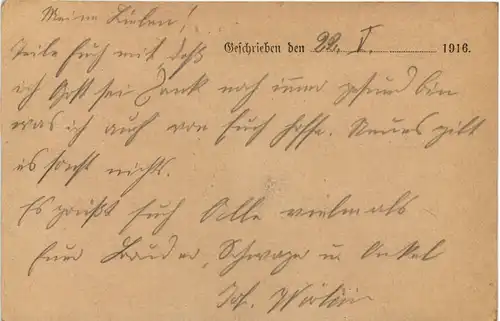 Meine Lieben!
Geschrieben den 22. V. 1916.
Teile Euch mit, daß
ich Gott sei Dank noch immer gesund bin
was ich auch von Euch hoffe. Neues gibt
es sonst nichts.
Es grüßt Euch Alle vielmals
Euer Bruder, Schwager u. Onkel
Joh.